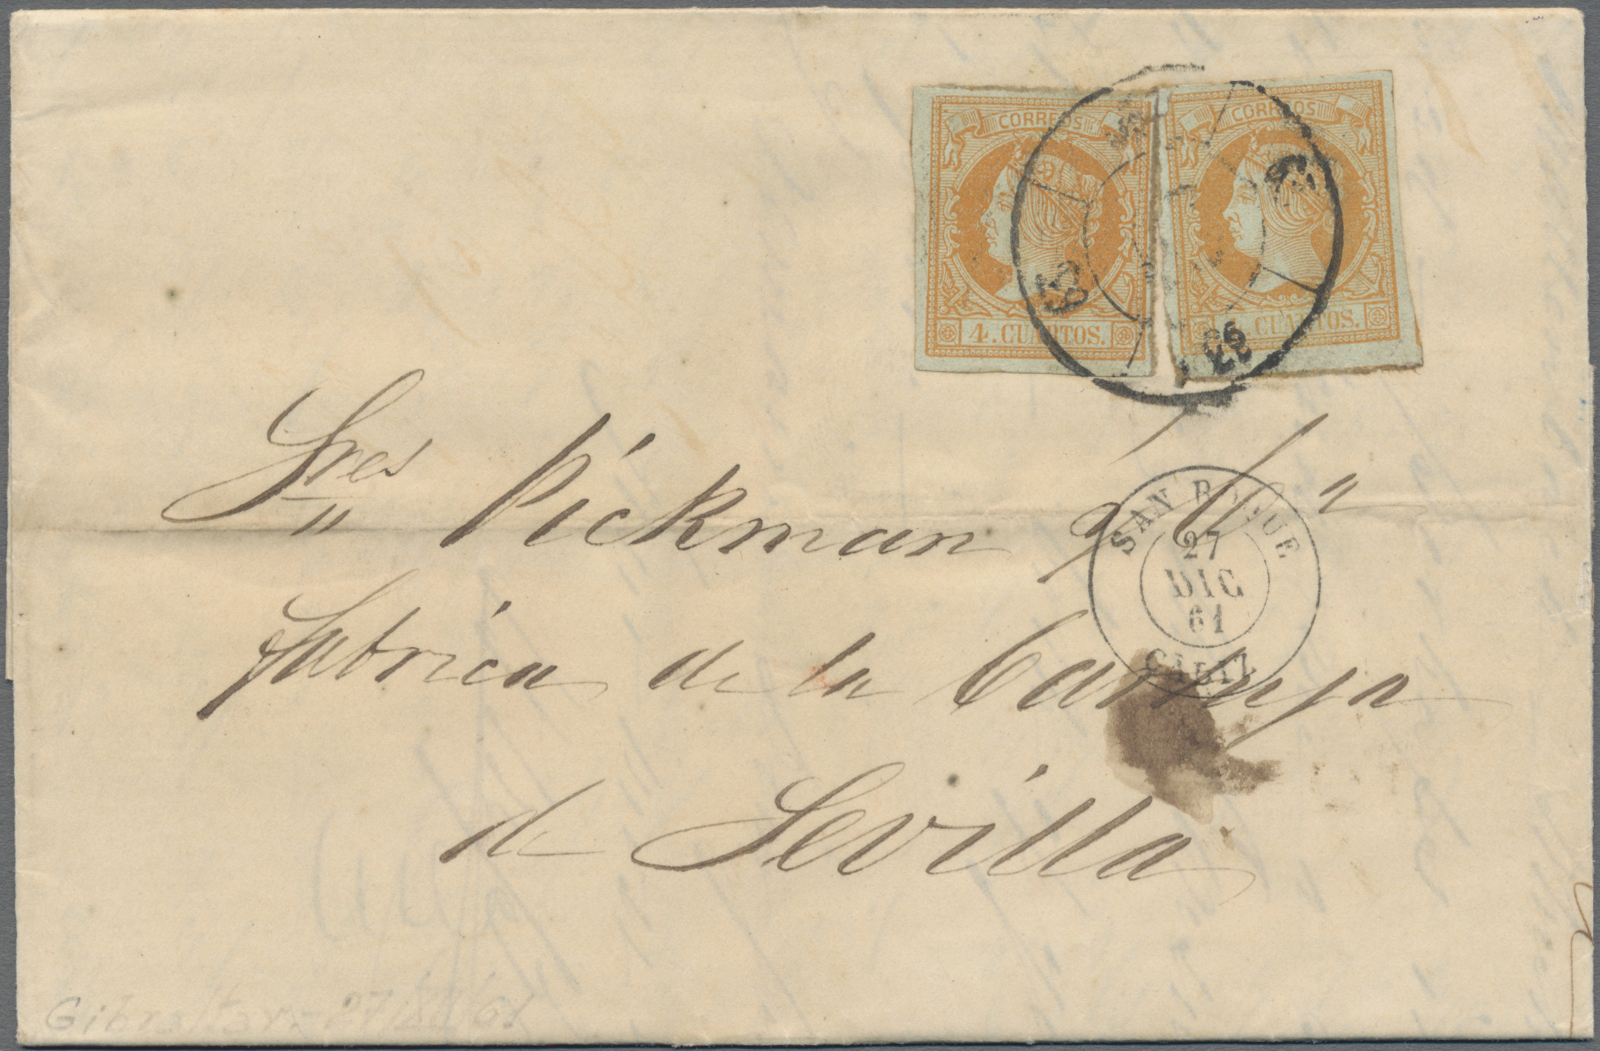 CORREOS CORREOS
4. CUARTOS. CUARTOS.
Sres Pickman y Ca
SAN ROQUE
27
DIC
61
CADIZ
fabrica de la Cartuja
de Sevilla
Gibraltar - 27/12/61